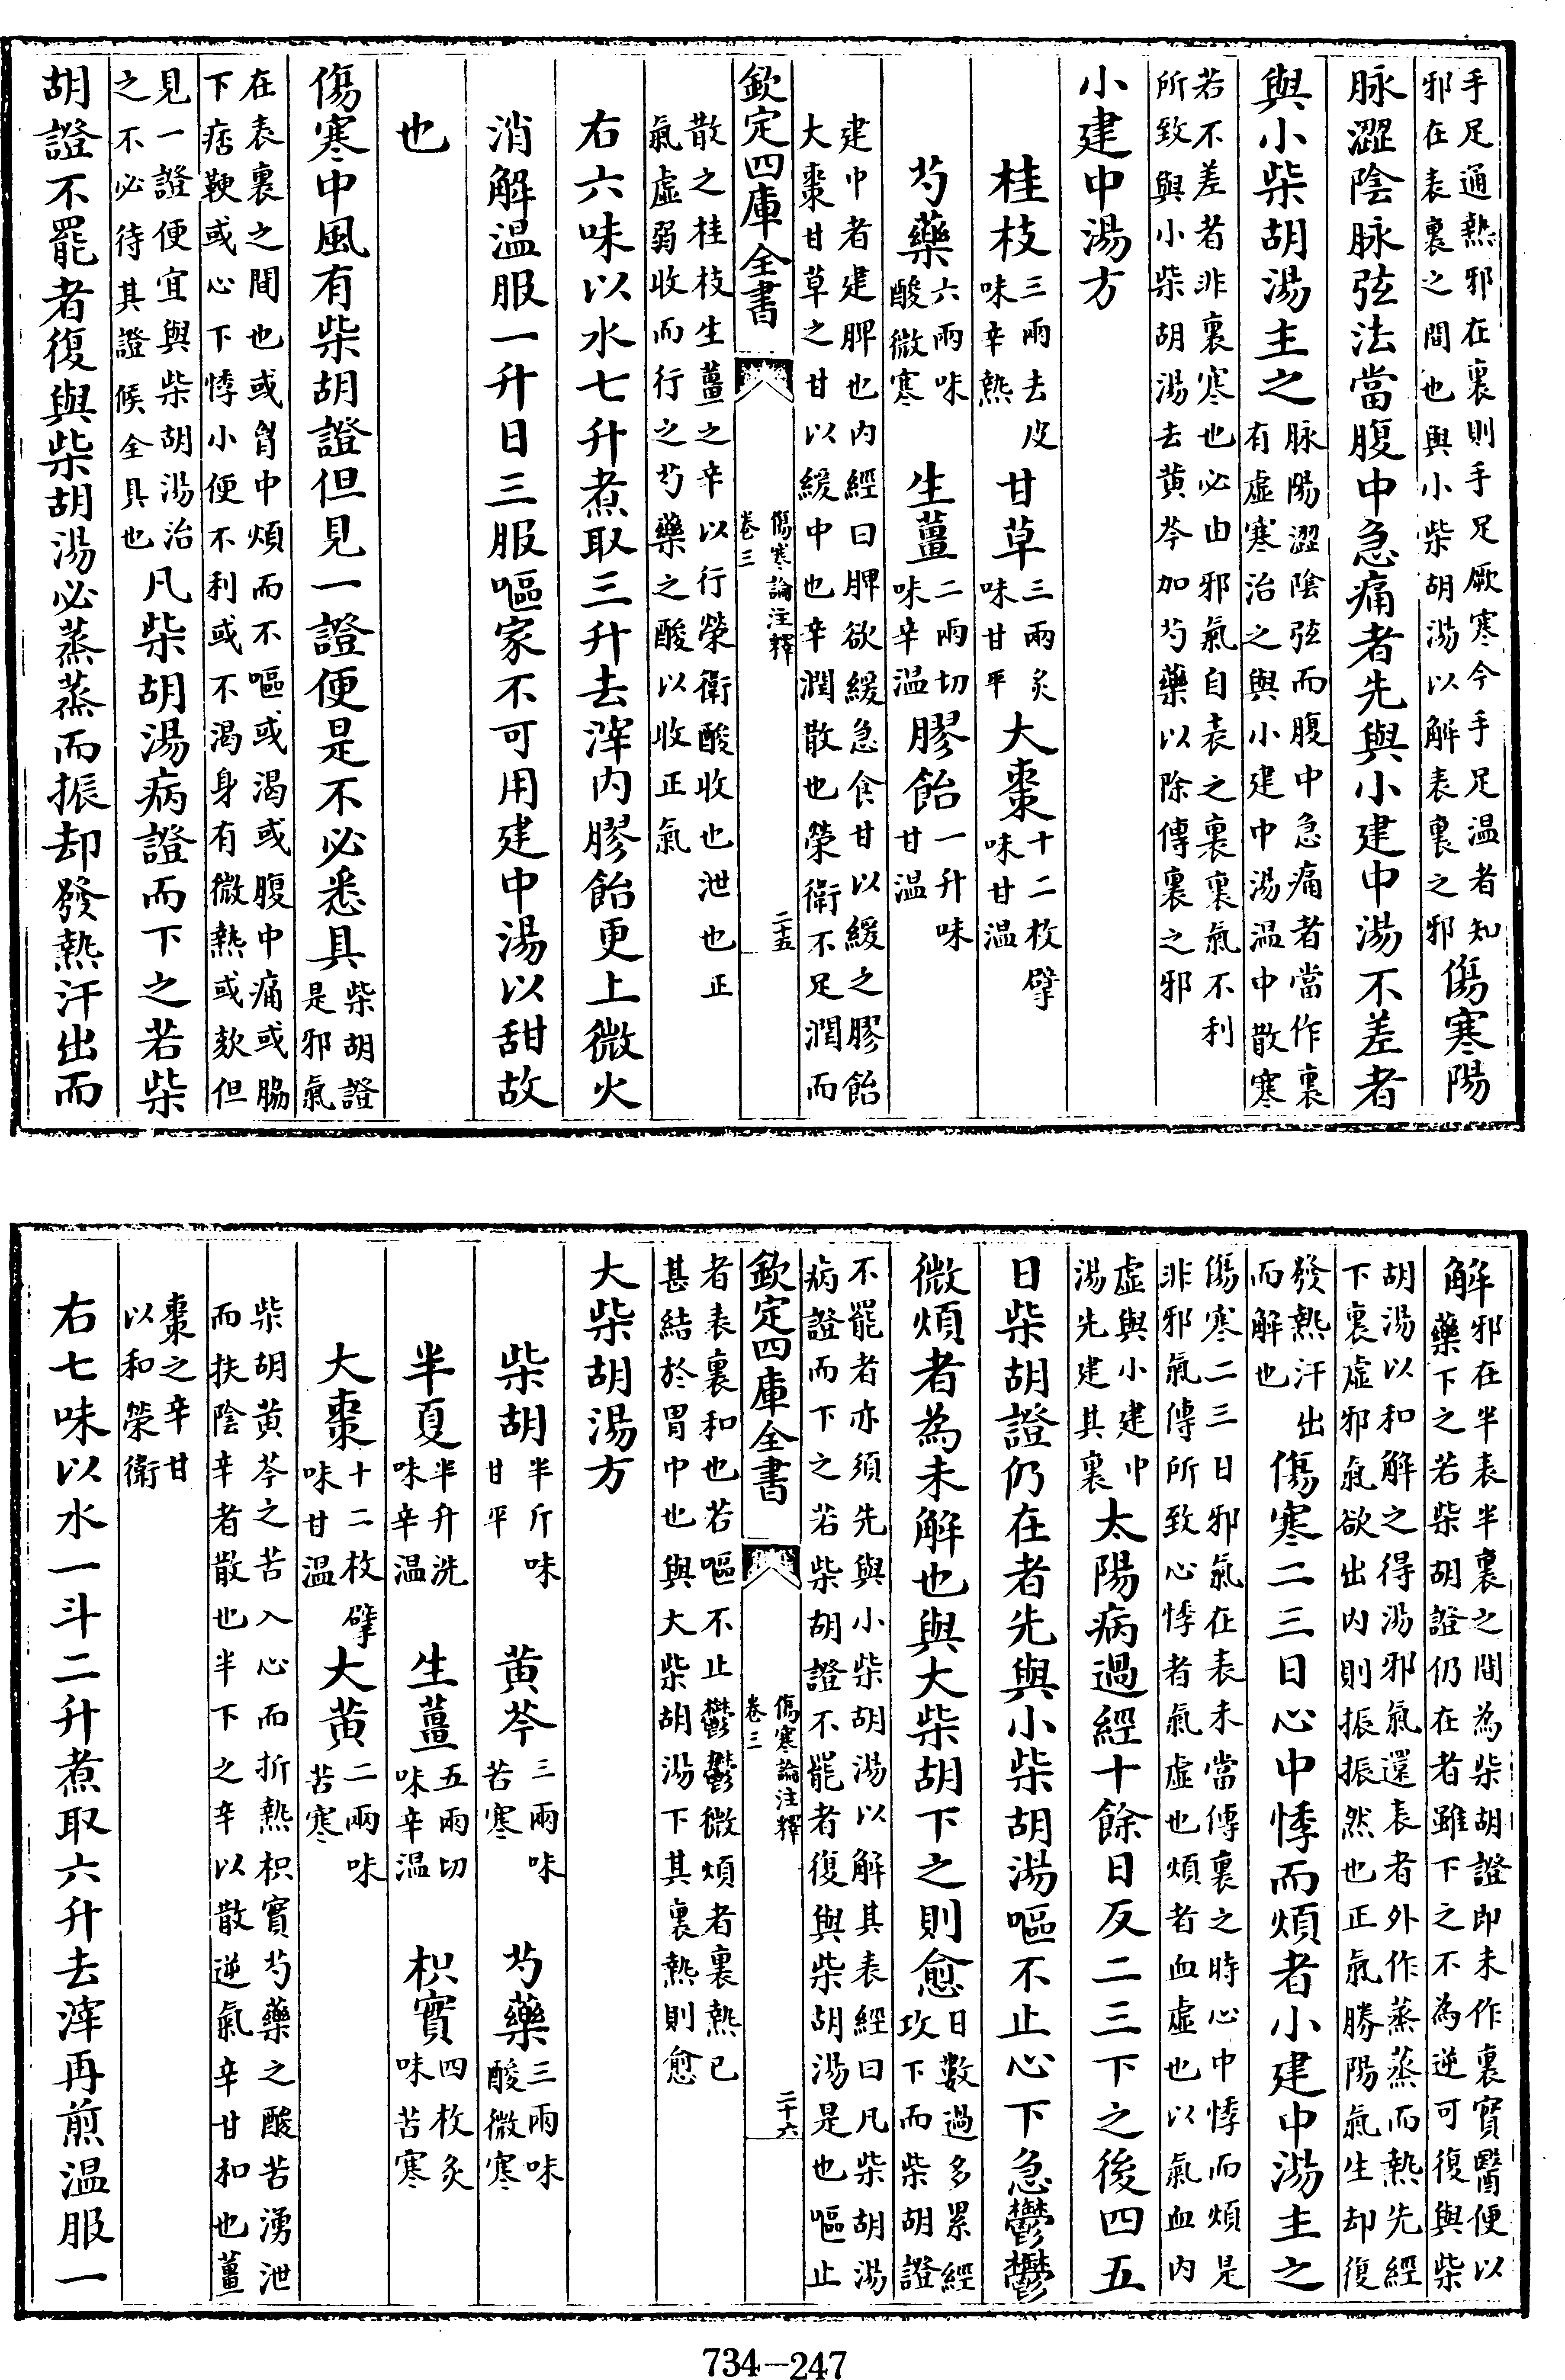 手足通熱邪在裏則手足厥寒今手足温者知
邪在表裏之間也與小柴胡湯以解表裏之邪
傷寒陽
脉澀陰脉弦法當腹中急痛者先與小建中湯不差者
與小柴胡湯主之
脉陽澀陰弦而腹中急痛者當作裏
有虛寒治之與小建中湯温中散寒
若不差者非裏寒也必由邪氣自表之裏裏氣不利
所致與小柴胡湯去黄芩加芍藥以除傳裏之邪
小建中湯方
桂枝三兩去皮味辛熱 甘草三兩炙味甘平 大棗十二枚擘味甘温
芍藥六兩味酸微寒 生薑二兩切味辛温 膠飴一升味甘温
建中者建脾也内經曰脾欲緩急食甘以緩之膠飴
大棗甘草之甘以緩中也辛潤散也榮衛不足潤而
欽定四庫全書 傷寒論注釋卷三 二十五
散之桂枝生薑之辛以行榮衛酸收也泄也正
氣虛弱收而行之芍藥之酸以收正氣
右六味以水七升煮取三升去滓内膠飴更上微火
消解温服一升日三服嘔家不可用建中湯以甜故
也
傷寒中風有柴胡證但見一證便是不必悉具
柴胡證
是邪氣
在表裏之間也或胷中煩而不嘔或渴或腹中痛或脇
下痞鞕或心下悸小便不利或不渴身有微熱或欬但
見一證便宜與柴胡湯治
之不必待其證候全具也
凡柴胡湯病證而下之若柴
胡證不罷者復與柴胡湯必蒸蒸而振却發熱汗出而
解
邪在半表半裏之間為柴胡證即未作裏實醫便以
藥下之若柴胡證仍在者雖下之不為逆可復與柴
胡湯以和解之得湯邪氣還表者外作蒸蒸而熱先經
下裏虛邪氣欲出内則振振然也正氣勝陽氣生却復
發熱汗出
而解也
傷寒二三日心中悸而煩者小建中湯主之
傷寒二三日邪氣在表未當傳裏之時心中悸而煩是
非邪氣傳所致心悸者氣虛也煩者血虛也以氣血内
虛與小建中
湯先建其裏
太陽病過經十餘日反二三下之後四五
日柴胡證仍在者先與小柴胡湯嘔不止心下急鬱鬱
微煩者為未解也與大柴胡下之則愈
日數過多累經
攻下而柴胡證
不罷者亦須先與小柴胡湯以解其表經曰凡柴胡湯
病證而下之若柴胡證不罷者復與柴胡湯是也嘔止
欽定四庫全書 傷寒論注釋卷三 二十六
者表裏和也若嘔不止鬱鬱微煩者裏熱已
甚結於胃中也與大柴胡湯下其裏熱則愈
大柴胡湯方
柴胡半斤味甘平 黄芩三兩味苦寒 芍藥三兩味酸微寒
半夏半升洗味辛温 生薑五兩切味辛温 枳實四枚炙味苦寒
大棗十二枚擘味甘温 大黄二兩味苦寒
柴胡黄芩之苦入心而折熱枳實芍藥之酸苦湧泄
而扶陰辛者散也半下之辛以散逆氣辛甘和也薑
棗之辛甘
以和榮衛
右七味以水一斗二升煮取六升去滓再煎温服一
734-247